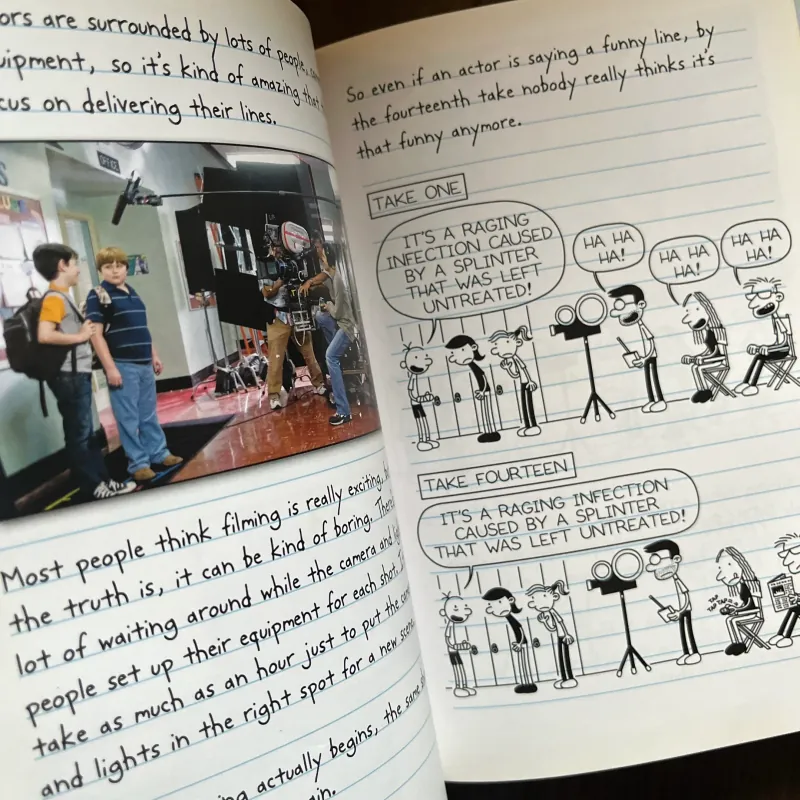 ors are surrounded by lots of people,
uipment, so it's kind of amazing that
cus on delivering their lines.
OFFICE
Most people think filming is really exciting,
the truth is, it can be kind of boring. There
lot of waiting around while the camera and
people set up their equipment for each shot.
take as much as an hour just to put the
and lights in the right spot for a new scene
actually begins, the same
So even if an actor is saying a funny line, by
the fourteenth take nobody really thinks it's
that funny anymore.
TAKE ONE
IT'S A RAGING
INFECTION CAUSED
BY A SPLINTER
THAT WAS LEFT
UNTREATED!
HA HA
HA!
HA HA
HA!
HA HA
HA!
TAKE FOURTEEN
IT'S A RAGING INFECTION
CAUSED BY A SPLINTER
THAT WAS LEFT UNTREATED!
TAP
TAP
TAP